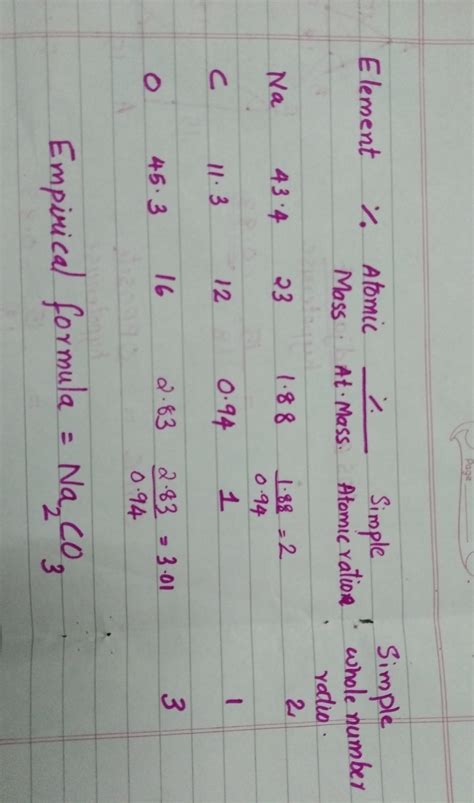 Page
Element % Atomic Mass. %/At. Mass. Simple Atomic ratio. Simple whole number ratio.
Na 43.4 23 1.88 1.88/0.94 = 2 2
C 11.3 12 0.94 1 1
O 45.3 16 2.83 2.83/0.94 = 3.01 3
Empirical formula = Na₂CO₃